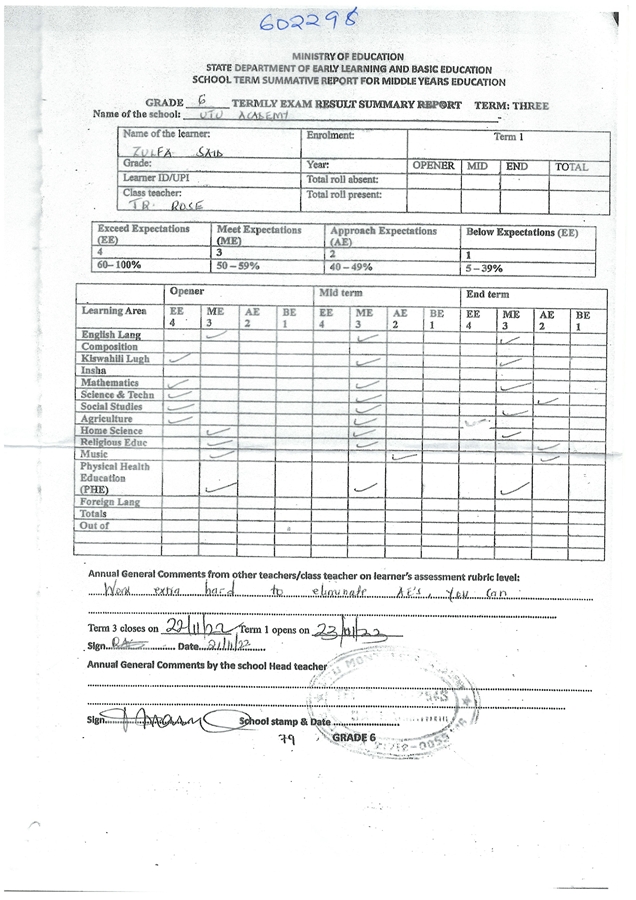 602298
MINISTRY OF EDUCATION
STATE DEPARTMENT OF EARLY LEARNING AND BASIC EDUCATION
SCHOOL TERM SUMMATIVE REPORT FOR MIDDLE YEARS EDUCATION
GRADE 6 TERMLY EXAM RESULT SUMMARY REPORT TERM: THREE
Name of the school: UTU ACADEMY
Name of the learner: ZULFA SAID Enrolment: Term 1
Grade: Year: OPENER MID END TOTAL
Learner ID/UPI Total roll absent:
Class teacher: TR. ROSE Total roll present:
Exceed Expectations (EE) Meet Expectations (ME) Approach Expectations (AE) Below Expectations (EE)
4 3 2 1
60–100% 50–59% 40–49% 5–39%
Opener Mid term End term
Learning Area EE 4 ME 3 AE 2 BE 1 EE 4 ME 3 AE 2 BE 1 EE 4 ME 3 AE 2 BE 1
English Lang ✓ ✓ ✓
Composition
Kiswahili Lugh ✓ ✓ ✓
Insha
Mathematics ✓ ✓ ✓
Science & Techn ✓ ✓ ✓
Social Studies ✓ ✓ ✓
Agriculture ✓ ✓ ✓
Home Science ✓ ✓ ✓
Religious Educ ✓ ✓ ✓
Music ✓ ✓ ✓
Physical Health
Education
(PHE) ✓ ✓ ✓
Foreign Lang
Totals
Out of
Annual General Comments from other teachers/class teacher on learner's assessment rubric level:
Work extra hard to eliminate AE's, You can
Term 3 closes on 22/11/22 Term 1 opens on 23/01/23
Sign Date 21/11/22
Annual General Comments by the school Head teacher
Sign School stamp & Date
79 GRADE 6